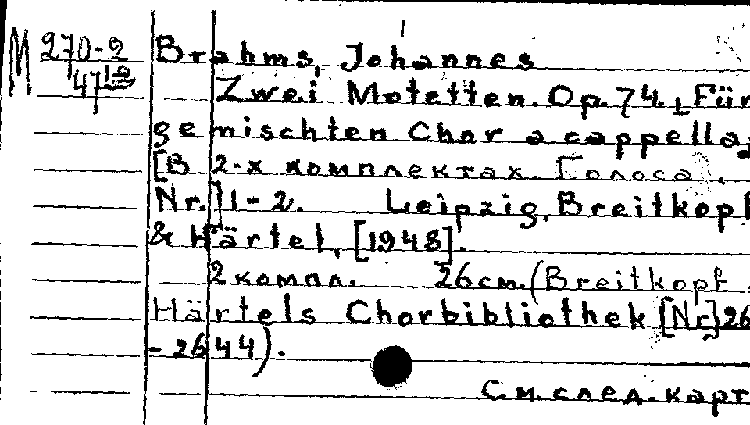 M 270-2 Brahms, Johannes
47 Zwei Motetten. Op. 74. Für
gemischten Chor a cappella,
[В 2-х комплектах. Голоса].
Nr. 1-2. Leipzig, Breitkopf
& Härtel, [1948].
2 компл. 26 см. (Breitkopf
Härtels Chorbibliothek [Nr] 26
-2644).
См. след. карт